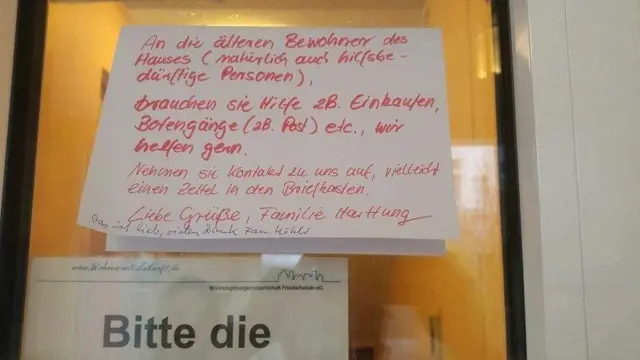 An die älteren Bewohner des
Hauses (natürlich auch hilfsbe-
dürftige Personen),
brauchen sie Hilfe zB. Einkaufen,
Botengänge (zB. Post) etc., wir
helfen gern.
Nehmen sie Kontakt zu uns auf, vielleicht
einen Zettel in den Briefkasten.
Liebe Grüße, Familie Harttung
Das ist lieb, vielen Dank Fam.
www.Wohnen-mit-Zukunft.de
Wohnungsbaugenossenschaft Friedrichshain eG
Bitte die